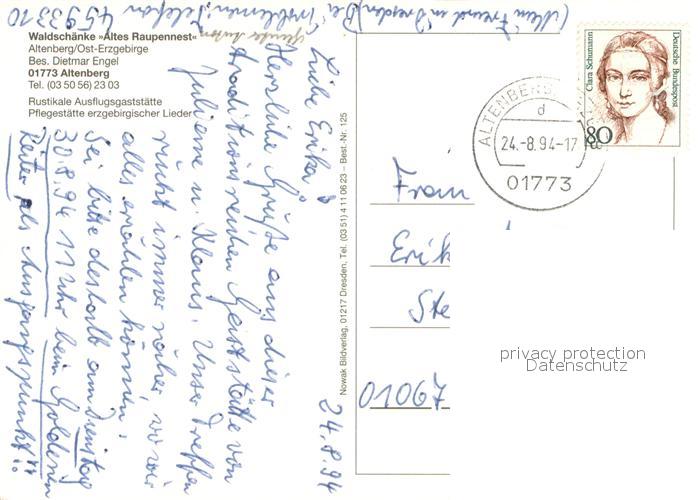 (Mein Freund in Dresden) Bei Problemen: Telefon 4593310
Waldschänke »Altes Raupennest«
Altenberg/Ost-Erzgebirge
Bes. Dietmar Engel
01773 Altenberg
Tel. (03 50 56) 23 03
Rustikale Ausflugsgaststätte
Pflegestätte erzgebirgischer Lieder
24.8.94
Liebe Erika!
Herzliche Grüße aus dieser
traditionsreichen Gaststätte von
Julianne u. Klaus. Unser Treffen
rückt immer näher wo wir
alles erzählen können.
Sei bitte deshalb am Dienstag
30.8.94 11 Uhr beim Goldenen
Reiter als Ausgangspunkt!!
Nowak Bildverlag, 01217 Dresden, Tel. (03 51) 4 11 06 23 – Best.-Nr. 125
ALTENBERG
d
24.-8.94-17
01773
Clara Schumann
Deutsche Bundespost
80
Erik
Ste
01067
privacy protection
Datenschutz